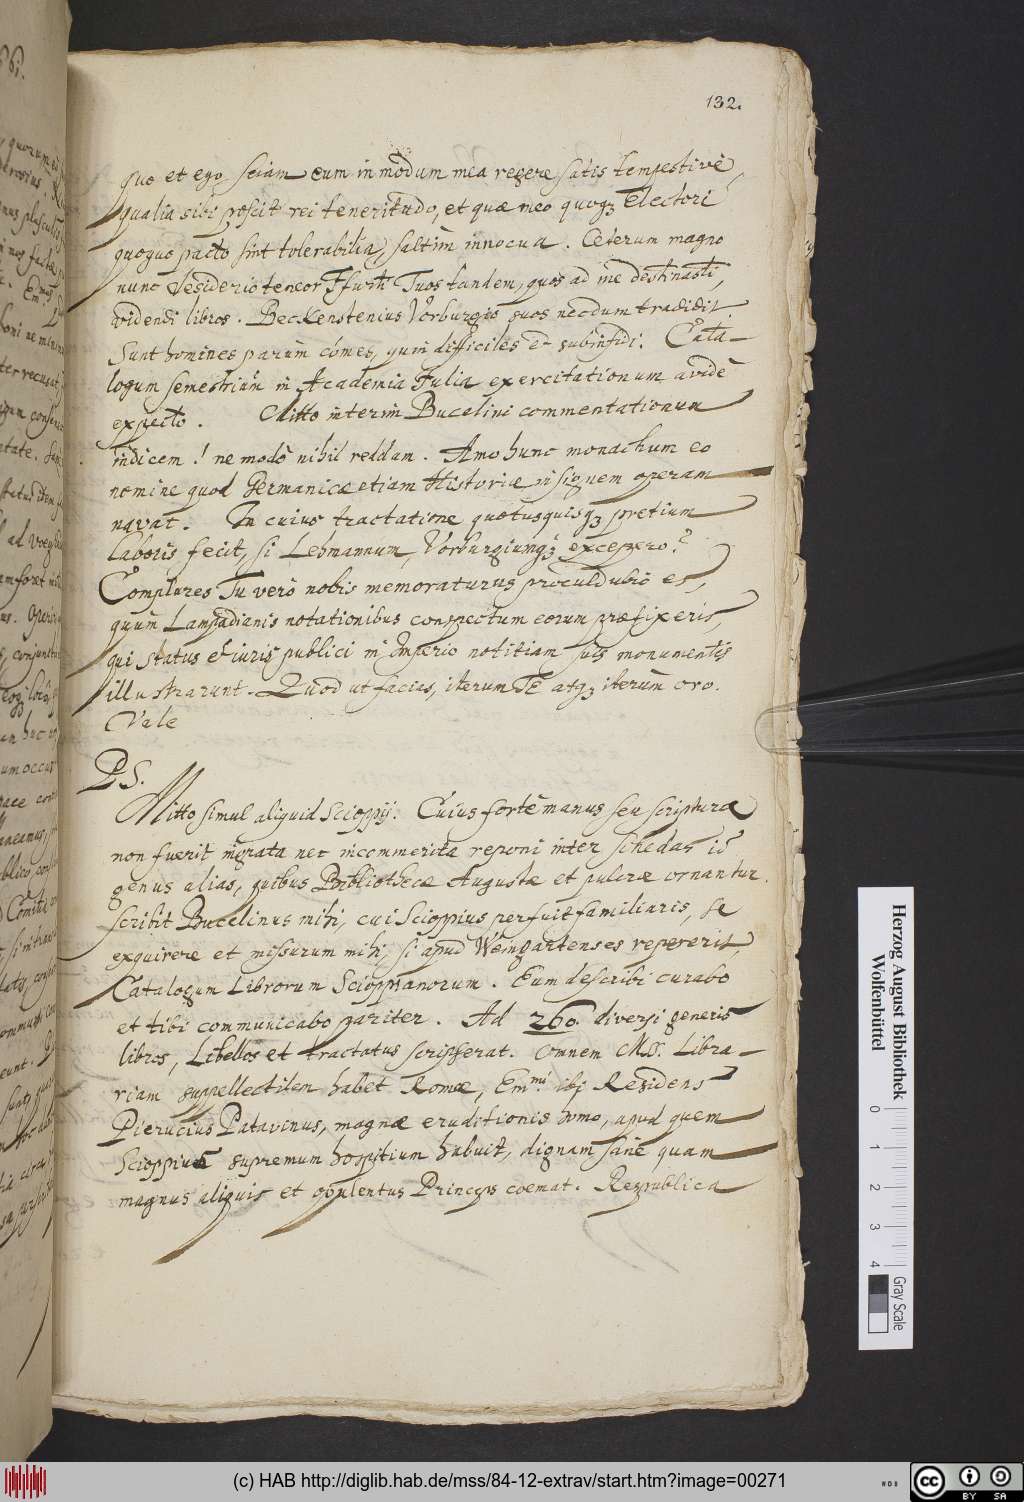 132.
quo et ego sciam eum in modum mea regere satis tempestivè,
qualia sibi poscit rei teneritudo, et quæ meo quoqꝫ Electori
quoquo pacto sint tolerabilia, saltim innocua. Ceterum magno
nunc desiderio teneor Tuos tandem, quos ad me destinasti,
videndi libros. Beckenstenius Vorburgio suos necdum tradidit.
Sunt homines parùm cómes, quin difficiles et subinfidi. Cata-
logum semestrium in Academia Julia exercitationum avidè
expecto. Mitto interim Bucelini commentationum
indicem! ne modò nihil reddam. Amo hunc monachum eo
nomine quod Germanicæ etiam Historiæ insignem operam
navat. In cuius tractatione quotusquisqꝫ pretium
laboris fecit, si Lehmannum, Vorburgiumqꝫ excepero?
Complures Tu verò nobis memoraturus proculdubio es,
quùm Lampadianis notationibus conspectum eorum præfixeris,
qui status et iuris publici in Imperio notitiam suis monumentis
illustrarunt. Quod ut facias, iterum TE atqꝫ iterùm oro.
Vale
PS.
Mitto simul aliquid Scioppij. Cuius fortè manus seu scriptura
non fuerit ingrata nec incommerita reponi inter schedas id
genus alias, quibus Bibliothecæ Augustæ et pulcræ ornantur.
scribit Bucelinus mihi, cui Scioppius perfuit familiaris, se
exquirere et missurum mihi, si apud Weingartenses repererit,
Catalogum Librorum Scioppianorum. Eum describi curabo
et tibi communicabo pariter. Ad 260. diversi generis
libros, Libellos et tractatus scripserat. Omnem MSS. Libra-
riam suppellectilem habet Romæ, Em.mi ibi Residens
Pierucius Patavinus, magnæ eruditionis homo, apud quem
Scioppius supremum hospitium habuit, dignam sanè quam
magnus aliquis et opulentus Princeps coemat. Respublica
Herzog August Bibliothek
Wolfenbüttel
0 1 2 3 4
Gray Scale
(c) HAB http://diglib.hab.de/mss/84-12-extrav/start.htm?image=00271
cc BY SA